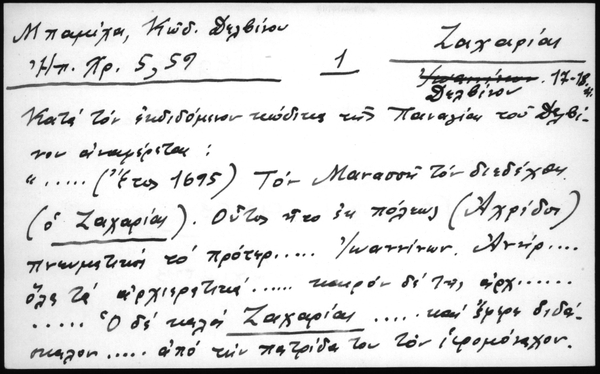 Μπαμίχα, Κῶδ. Δελβίνου
Ζαχαρίας
Ἠπ. Χρ. 5, 59
1
Ἰωαννίνων. 17-18
Δελβίνου
Κατά τόν ἐκδιδόμενον κώδικα τῆς Παναγίας τοῦ Δελβί-
νου ἀναφέρεται :
"..... (Ἔτος 1695) Τόν Μανασσῆ τόν διεδέχθη
(ὁ Ζαχαρίας). Οὗτος ἦτο ἐκ πόλεως (Ἀχρίδος)
πνευματικός τό πρότερ..... Ἰωαννίνων. Ἀνήρ....
ὅλα τά ἀρχιερατικά...... καιρόν δέ ἀρχ......
...... Ὁ δέ καλός Ζαχαρίας ..... καί ἔφερε διδά-
σκαλον ..... ἀπό τήν πατρίδα του τόν ἱερομόναχον.